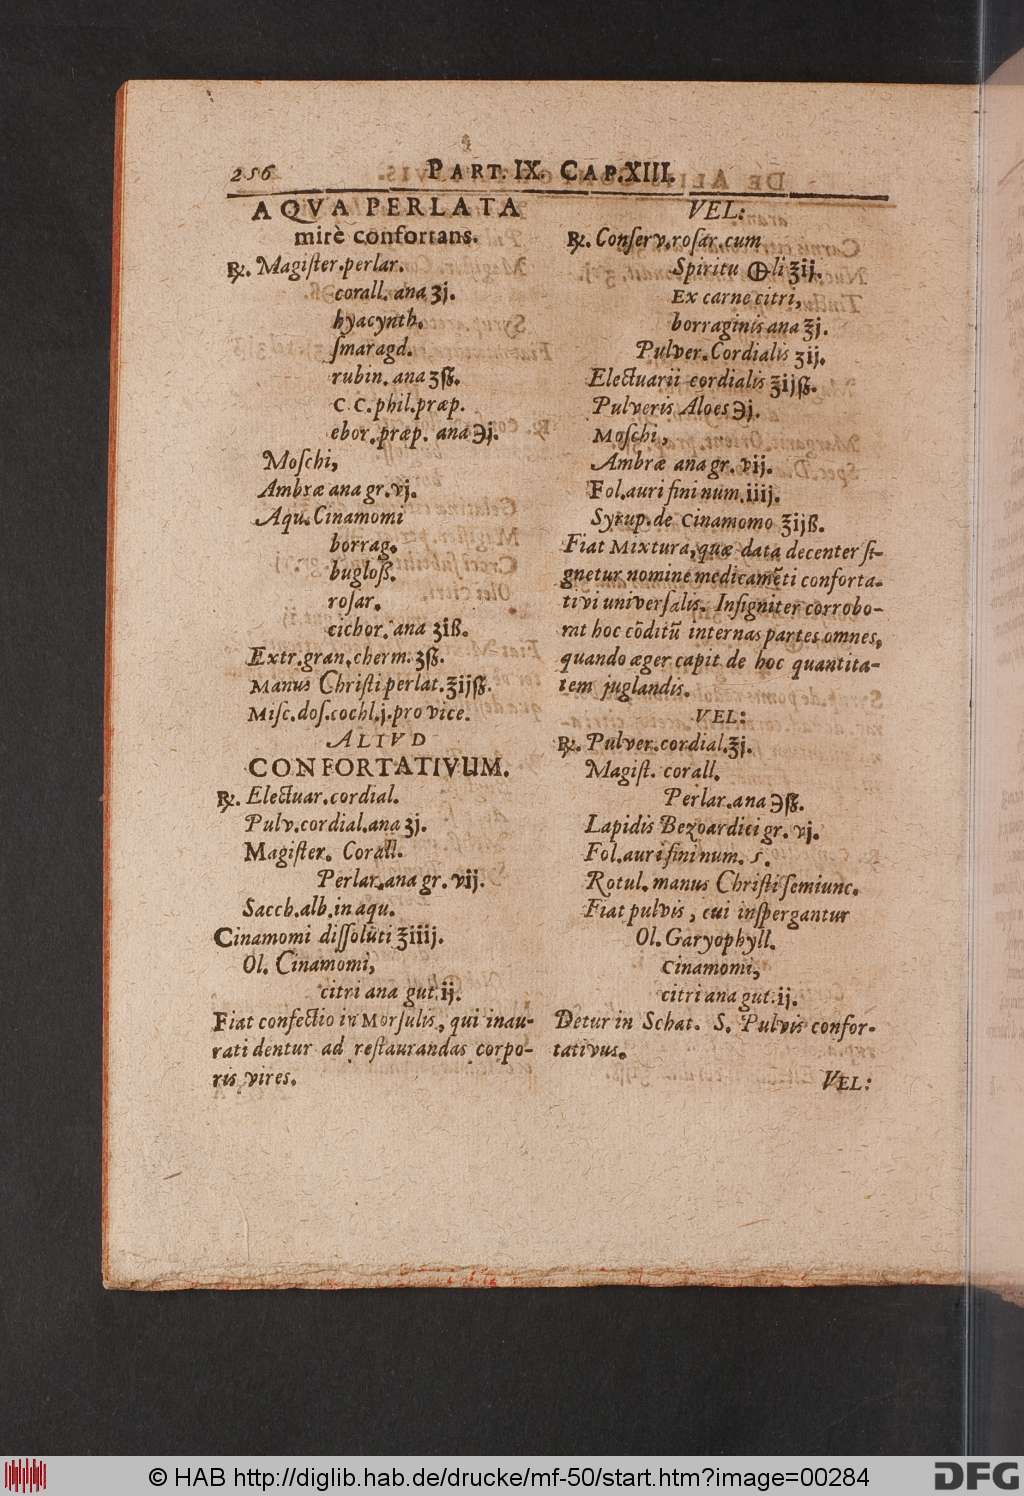 256 PART. IX. CAP. XIII.
AQVA PERLATA
mirè confortans.
℞. Magiſter. perlar.
corall. ana ʒj.
hyacynth.
ſmaragd.
rubin. ana ʒſß.
C C. phil. præp.
ebor. præp. ana ℈j.
Moſchi,
Ambræ ana gr. vj.
Aqu. Cinamomi
borrag.
bugloß.
roſar.
cichor. ana ʒiß.
Extr. gran. cherm. ʒſß.
Manus Chriſti perlat. ℥ijſß.
Miſc. doſ. cochl. j. pro vice.
ALIVD
CONFORTATIVUM.
℞. Electuar. cordial.
Pulv. cordial. ana ʒj.
Magiſter. Corall.
Perlar. ana gr. vij.
Sacch. alb. in aqu.
Cinamomi diſſoluti ℥iiij.
Ol. Cinamomi,
citri ana gut. ij.
Fiat confectio in Morſulis, qui inau-
rati dentur ad reſtaurandas corpo-
ris vires.
VEL:
℞. Conſerv. roſar. cum
Spiritu 🜨li ℥ij.
Ex carne citri,
borraginis ana ℥j.
Pulver. Cordialis ʒij.
Electuarii cordialis ℥ijſß.
Pulveris Aloes ℈j.
Moſchi,
Ambræ ana gr. vij.
Fol. auri fini num. iiij.
Syrup. de Cinamomo ℥ijß.
Fiat Mixtura, quæ data decenter ſi-
gnetur nomine medicamēti conforta-
tivi univerſalis. Inſigniter corrobo-
rat hoc cōditū internas partes omnes,
quando æger capit de hoc quantita-
tem juglandis.
VEL:
℞. Pulver. cordial. ℥j.
Magiſt. corall.
Perlar. ana ℈ſß.
Lapidis Bezoardici gr. vj.
Fol. auri fini num. 5.
Rotul. manus Chriſti ſemiunc.
Fiat pulvis, cui inſpergantur
Ol. Garyophyll.
Cinamomi,
citri ana gut. ij.
Detur in Schat. S. Pulvis confor-
tativus.
VEL:
© HAB http://diglib.hab.de/drucke/mf-50/start.htm?image=00284
DFG